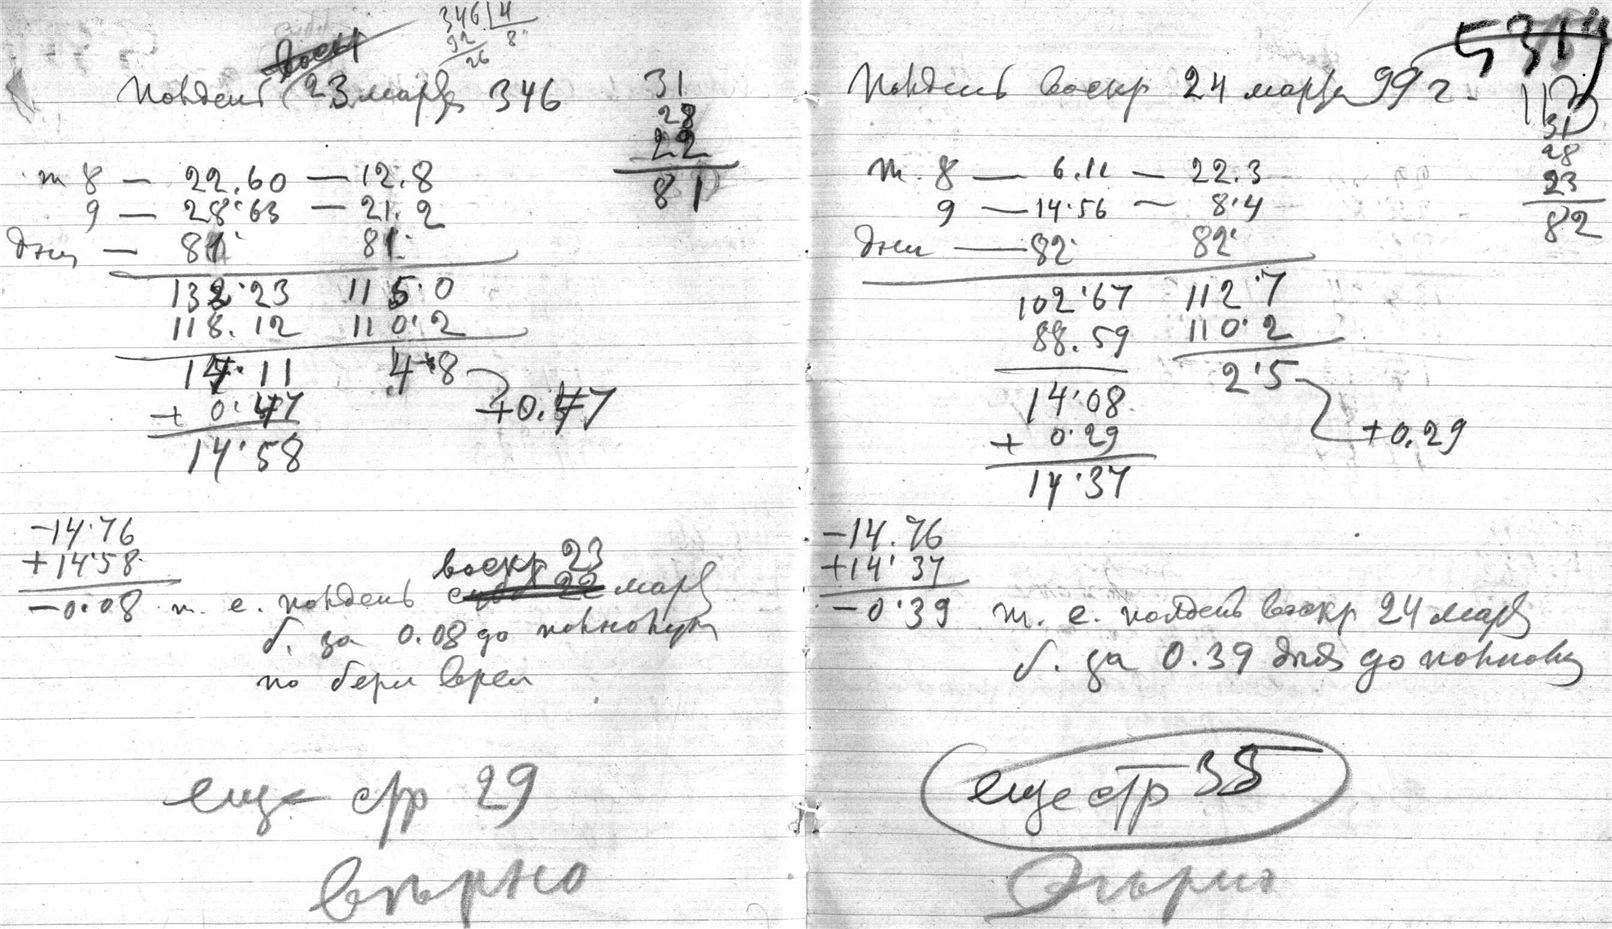 346 4
32 8
26
воскр
Полдень 23 марта 346
31
28
22
81
т 8 — 22.60 — 12.8
9 — 28.63 — 21.2
дни — 81 81
132.23 115.0
118.12 110.2
14.11 4.8
+ 0.47 +0.47
14.58
-14.76
+14.58
-0.08 т. е. полдень
воскр 23
марта
б. за 0.08 до
по берл врем
еще стр 29
вѣрно
5319
Полдень воскр 24 марта 99 г.
31
28
23
82
т. 8 — 6.11 — 22.3
9 — 14.56 — 8.4
дни — 82 82
102.67 112.7
88.59 110.2
14.08 2.5
+ 0.29 +0.29
14.37
-14.76
+14.37
-0.39 т. е. полдень воскр 24 марта
б. за 0.39 дня до полнолун
еще стр 35
Вѣрно